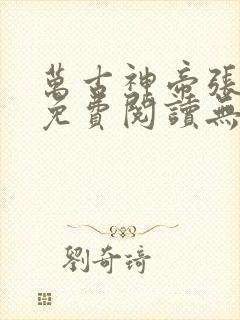 萬古神帝張
免費閱讀無
劉奇琦